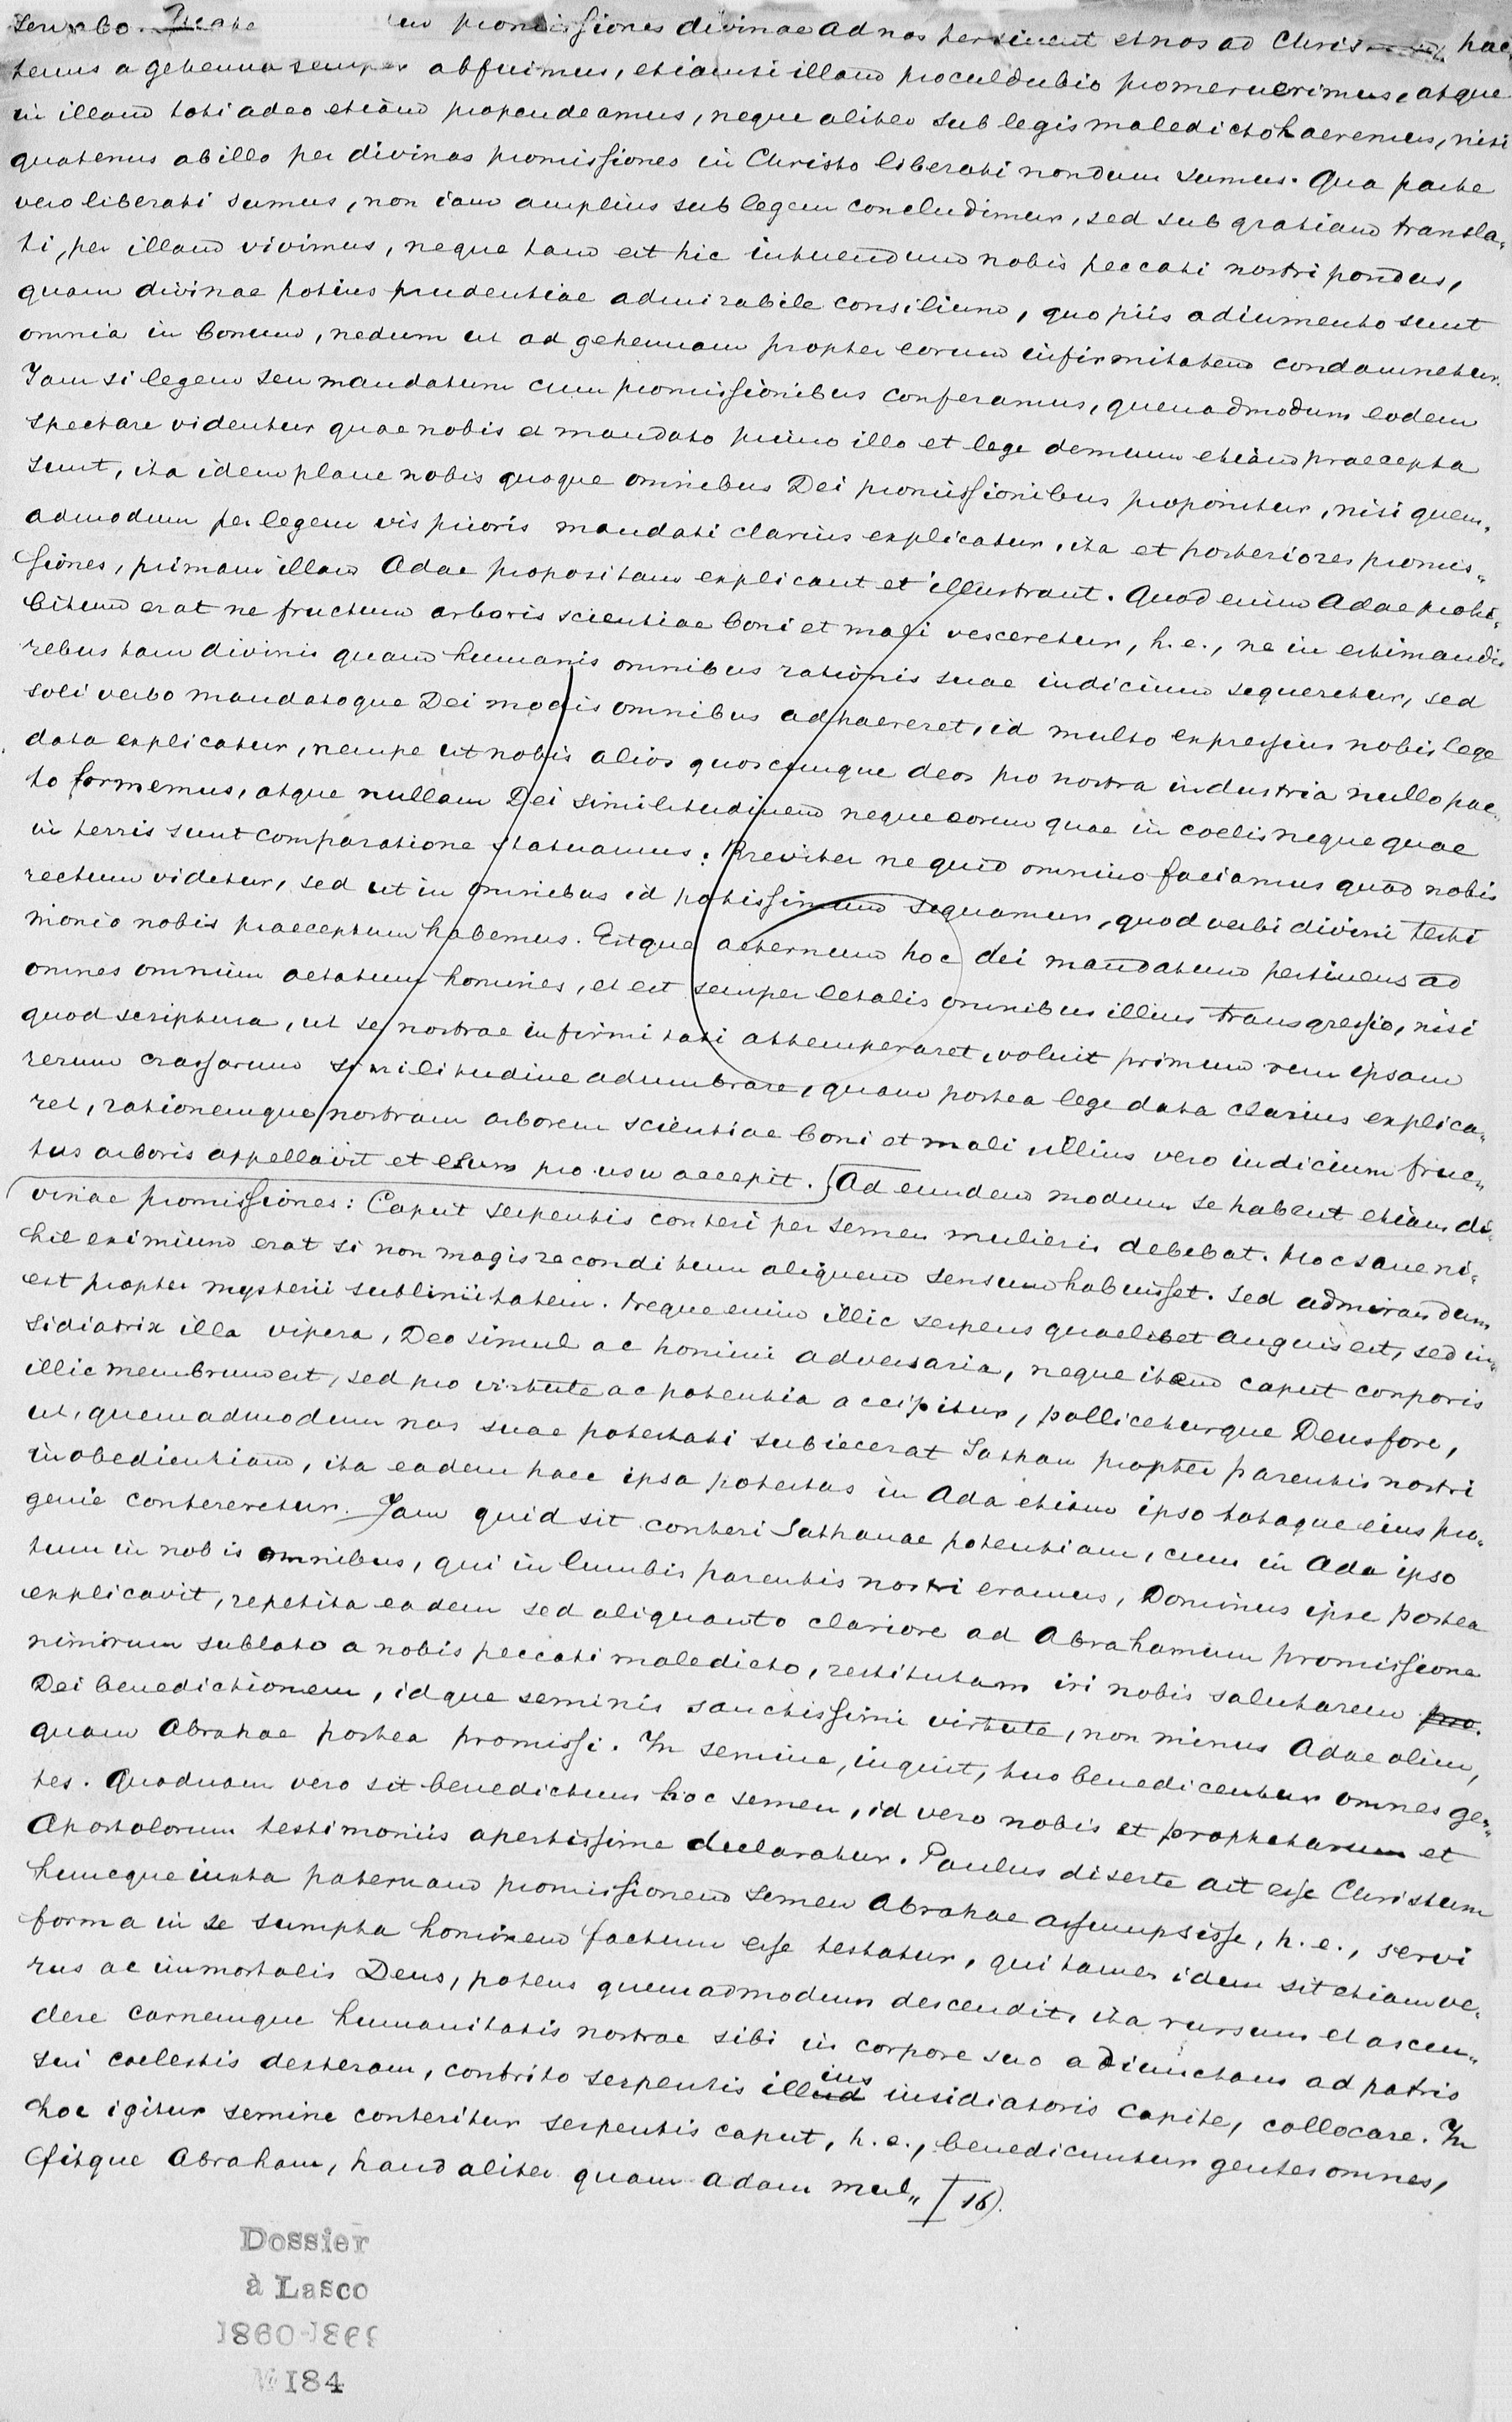 promissiones divinae ad nos pertinent et nos ad Chris hac„
tenus a gehenna semper abfuimus, etiamsi illam proculdubio promeruerimus, atque
in illam toti adeo etiam propendeamus, neque aliter sub legis maledicto haeremus, nisi
quatenus ab illo per divinas promissiones in Christo liberati nondum sumus. Qua parte
vero liberati sumus, non iam amplius sub legem concludimur, sed sub gratiam transla„
ti, per illam vivimus, neque tam est hic intuendum nobis peccati nostri pondus,
quam divinae potius prudentiae admirabile consilium, quo piis adiumento sunt
omnia in bonum, nedum ut ad gehennam propter eorum infirmitatem condamnetur.
Iam si legem seu mandatum cum promissionibus conferamus, quemadmodum eodem
spectare videntur quae nobis et mandato primo illo et lege demum etiam praecepta
sunt, ita idem plane nobis quoque omnibus Dei promissionibus proponitur, nisi quem„
admodum per legem vis prioris mandati clarius explicatur, ita et posteriores promis„
siones, primam illam Adae propositam explicant et illustrant. Quod enim Adae prohi„
bitum erat ne fructum arboris scientiae boni et mali vesceretur, h. e., ne in estimandis
rebus tam divinis quam humanis omnibus rationis suae iudicium sequeretur, sed
soli verbo mandatoque Dei modis omnibus adhaereret, id multo expressius nobis lege
data explicatur, nempe ut nobis alios quoscunque deos pro nostra industria nullo pac„
to formemus, atque nullam Dei similitudinem neque eorum quae in coelis neque quae
in terris sunt comparatione statuamus: Breviter ne quid omnino faciamus quod nobis
rectum videtur, sed ut in omnibus id potissimum sequamur, quod verbi divini testi
monio nobis praeceptum habemus. Estque aeternum hoc dei mandatum pertinens ad
omnes omnium aetatum homines, et est semper letalis omnibus illius transgressio, nisi
quod scriptura, ut se nostrae infirmitati attemperaret, voluit primum rem ipsam
rerum crassarum similitudine adumbrare, quam postea lege data clarius explica„
ret, rationemque nostram arborem scientiae boni et mali, illius vero iudicium fruc„
tus arboris appellavit et esum pro usu accepit. Ad eundem modum se habent etiam di„
vinae promissiones: Caput serpentis conteri per semen mulieris debebat. Hoc sane ni„
hil eximium erat si non magis reconditum aliquem sensum habuisset. Sed admirandum
est propter mysterii sublimitatem. Neque enim illic serpens quaelibet anguis est, sed in„
sidiatrix illa vipera, Deo simul ac homini adversaria, neque item caput corporis
illic membrum est, sed pro virtute ac potentia accipitur, polliceturque Deus fore,
ut, quemadmodum nos suae potestati subiecerat Sathan propter parentis nostri
inobedientiam, ita eadem haec ipsa potestas in Ada etiam ipso totaque eius pro„
genie contereretur. Jam quid sit conteri Sathanae potentiam, cum in Ada ipso
tum in nobis omnibus, qui in lumbis parentis nostri eramus, Dominus ipse postea
explicavit, repetita eadem sed aliquanto clariore ad Abrahamum promissione
nimirum sublato a nobis peccati maledicto, restitutam iri nobis salutarem pro.
Dei benedictionem, idque seminis sanctissimi virtute, non minus Adae olim,
quam Abrahae postea promissi. In semine, inquit, tuo benedicentur omnes gen„
tes. Quodnam vero sit benedictum hoc semen, id vero nobis et prophetarum et
Apostolorum testimoniis apertissime declaratur. Paulus diserte ait esse Christum
huncque iuxta paternam promissionem semen Abrahae assumpsisse, h. e., servi
forma in se sumpta hominem factum esse testatur, qui tamen idem sit etiam ve„
rus ac immortalis Deus, potens quemadmodum descendit, ita rursum et ascen„
dere carnemque humanitatis nostrae sibi in corpore suo adiunctam ad patris
sui coelestis dexteram, contrito serpentis illud ius insidiatoris capite, collocare. In
hoc igitur semine conteritur serpentis caput, h. e., benedicuntur gentes omnes,
fitque Abraham, haud aliter quam Adam mul„ 16).
Dossier
à Lasco
1860-1869
№ 184